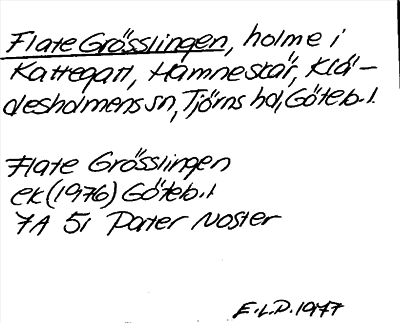 Flate Grösslingen, holme i
Kattegatt, Hamneskär, Klä-
desholmens sn, Tjörns hd, Göteb. l.
Flate Grösslingen
ek (1976) Göteb. l
7A 51 Pater Noster
E.L.P. 1977